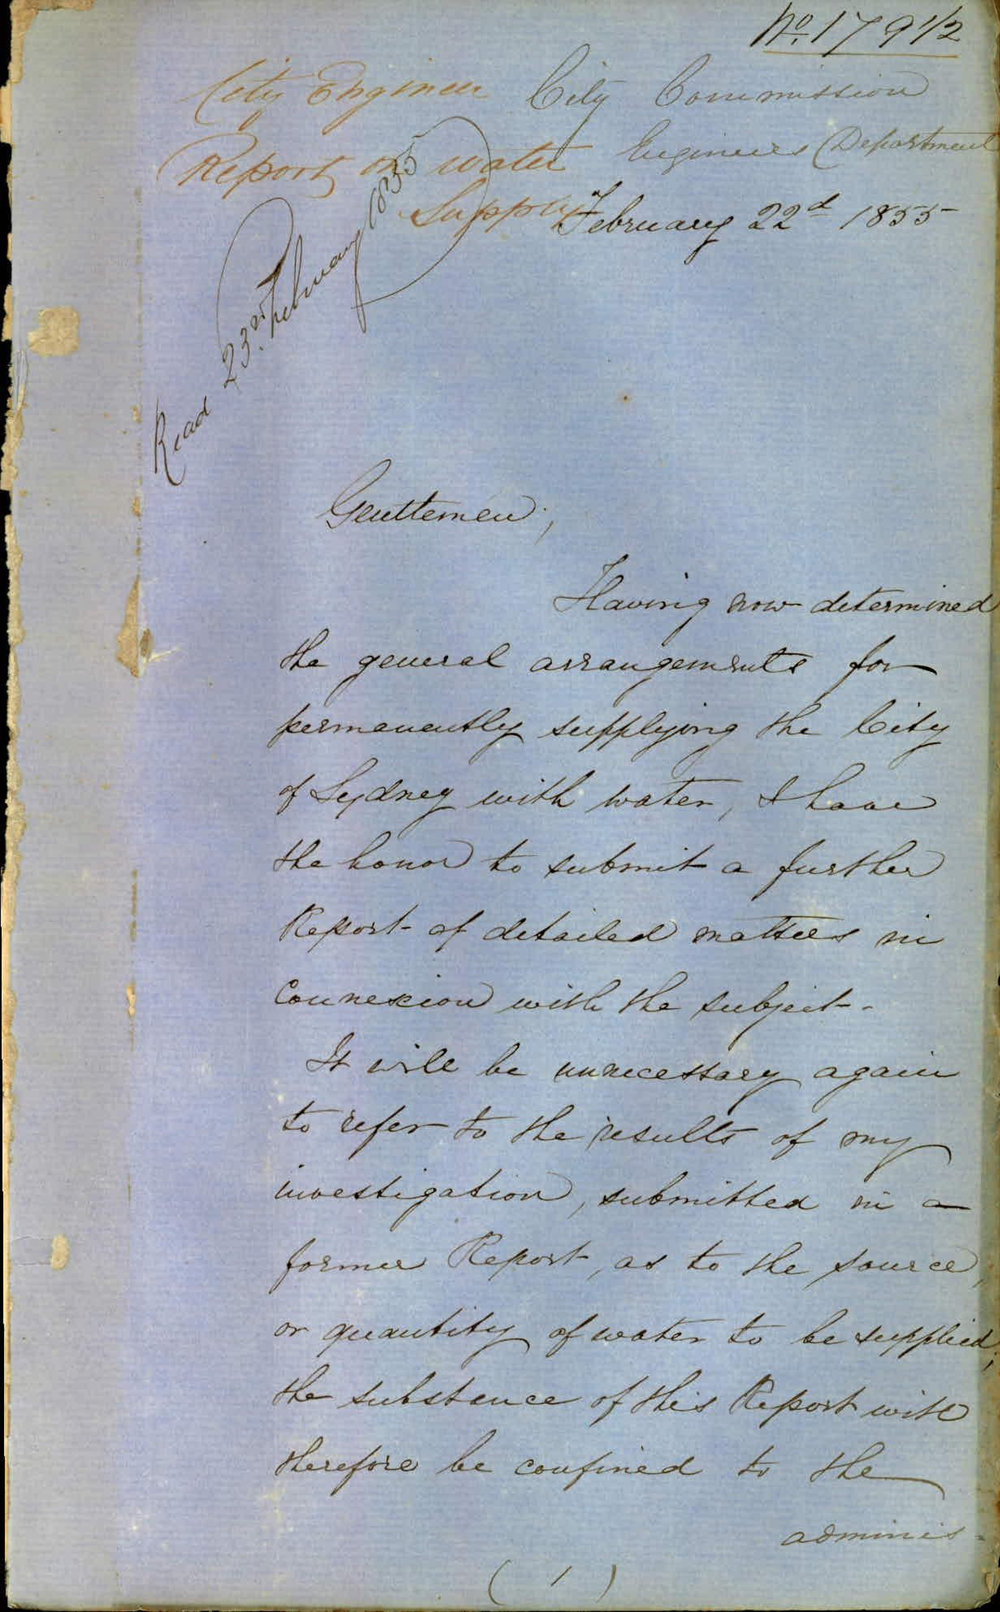 No. 179 1/2
City Engineer
Report on water
Supply
City Commission
Engineers Department
February 22d 1855
Read 23rd February 1855
Gentlemen,
Having now determined
the general arrangements for
permanently supplying the City
of Sydney with water, I have
the honor to submit a further
Report of detailed matters in
connexion with the subject.
It will be unnecessary again
to refer to the results of my
investigation, submitted in a
former Report, as to the source,
or quantity of water to be supplied;
the substance of this Report will
therefore be confined to the
adminis-
( 1 )